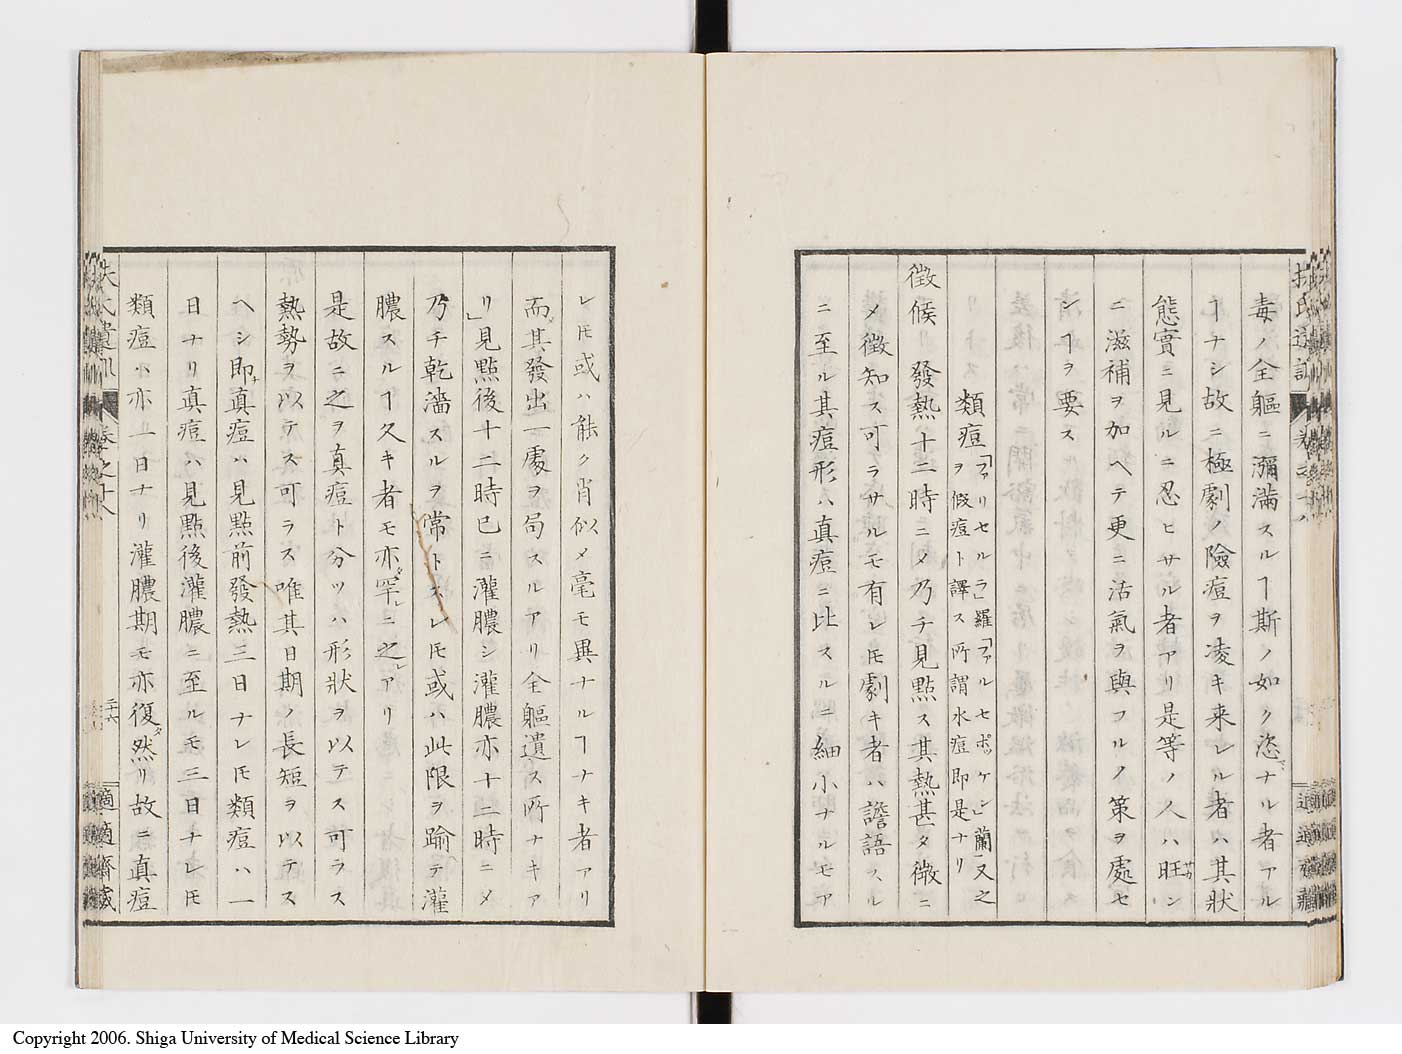 毒ノ全軀ニ瀰滿スルヿ斯ノ如ク恣ナル者アル
ヿナシ故ニ極劇ノ險痘ヲ凌キ来レル者ハ其狀
態實ニ見ルニ忍ヒサル者アリ是等ノ人ハ旺ン
ニ滋補ヲ加ヘテ更ニ活氣ヲ與フルノ策ヲ處セ
シヿヲ要ス
類痘「ファリセルラ」羅「ファルセポッケン」蘭又之
ヲ假痘ト譯ス所謂水痘即是ナリ
徴候 發熱十二時ニメ乃チ見點ス其熱甚タ微ニ
メ徴知ス可ラサルモ有レ𪜈劇キ者ハ譫語ヲスル
ニ至ル其痘形ハ真痘ニ比スルニ細小ナルモア
レ𪜈或ハ能ク肖似メ毫モ異ナルヿナキ者アリ
而其發出一處ヲ局スルアリ全軀遺ス所ナキア
リ」見點後十二時已ニ灌膿シ灌膿亦十二時ニメ
乃チ乾濇スルヲ常トスレ𪜈或ハ此限ヲ踰テ灌
膿スルヿ久キ者モ亦罕ニ之アリ
是故ニ之ヲ真痘ト分ツハ形狀ヲ以テス可ラス
熱勢ヲ以テス可ラス唯其日期ノ長短ヲ以テス
ヘシ即真痘ハ見點前發熱三日ナレ𪜈類痘ハ一
日ナリ真痘ハ見點後灌膿ニ至ルモ三日ナレ𪜈
類痘ハ亦一日ナリ灌膿期モ亦復然リ故ニ真痘
扶氏遺訓 卷之十八
二十六
適適齋藏
Copyright 2006. Shiga University of Medical Science Library